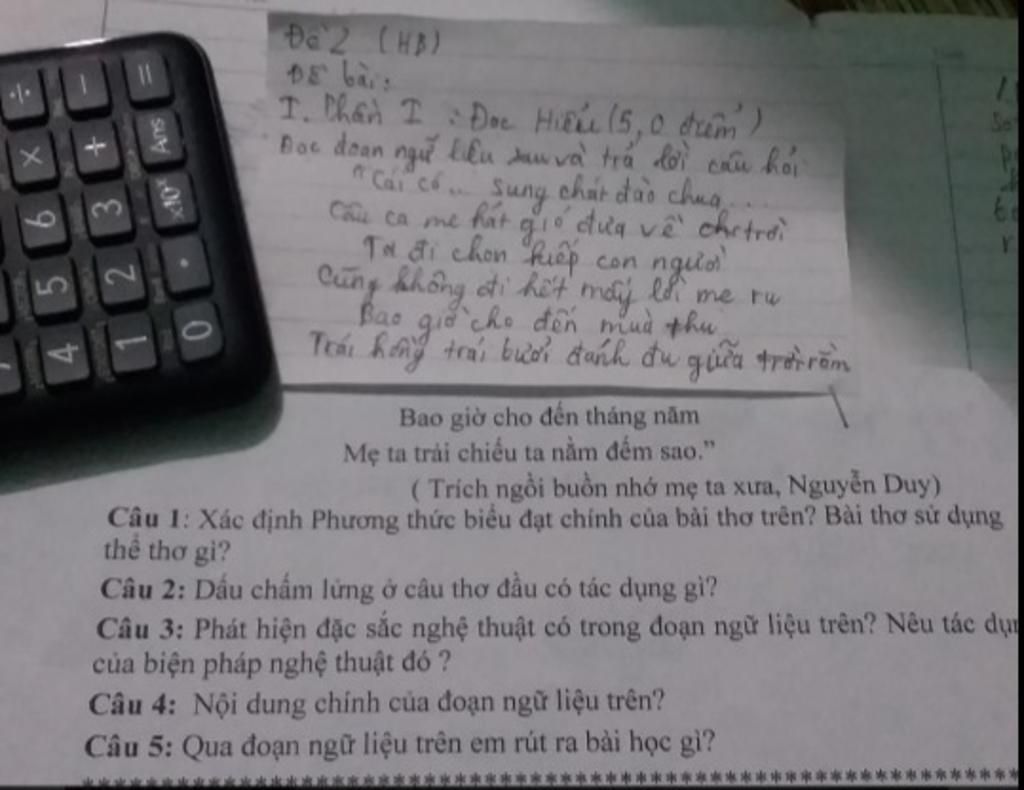 ÷ - =
× + Ans
6 3 ×10ˣ
5 2 .
4 1 0
Đề 2 (HB)
Đề bài:
I. Phần I : Đọc Hiểu (5,0 điểm)
Đọc đoạn ngữ liệu sau và trả lời câu hỏi
"Cái cò... sung chát đào chua...
Câu ca mẹ hát gió đưa về trời
Ta đi chọn kiếp con người
Cũng không đi hết mấy lời mẹ ru
Bao giờ cho đến mùa thu
Trái hồng trái bưởi đánh đu giữa trời rằm
Bao giờ cho đến tháng năm
Mẹ ta trải chiếu ta nằm đếm sao."
( Trích ngồi buồn nhớ mẹ ta xưa, Nguyễn Duy)
Câu 1: Xác định Phương thức biểu đạt chính của bài thơ trên? Bài thơ sử dụng
thể thơ gì?
Câu 2: Dấu chấm lửng ở câu thơ đầu có tác dụng gì?
Câu 3: Phát hiện đặc sắc nghệ thuật có trong đoạn ngữ liệu trên? Nêu tác
của biện pháp nghệ thuật đó ?
Câu 4: Nội dung chính của đoạn ngữ liệu trên?
Câu 5: Qua đoạn ngữ liệu trên em rút ra bài học gì?